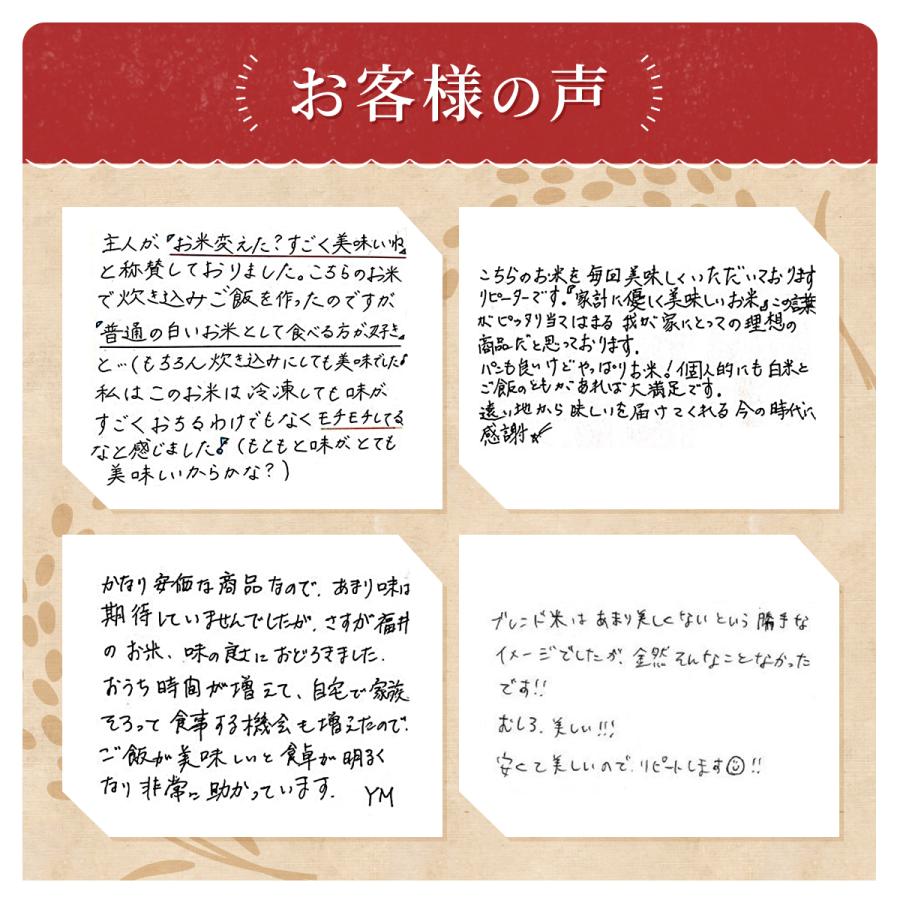 お客様の声
主人が、『お米変えた?すごく美味しいね』
と称賛しておりました。こちらのお米
で炊き込みご飯を作ったのですが
『普通の白いお米として食べる方が好き』
と…(もちろん炊き込みにしても美味でした』
私はこのお米は冷凍しても味が
すごくおちるわけでもなくモチモチしてる
なと感じました!(もともと味がとても
美味しいからかな?)
こちらのお米を毎回美味しくいただいております
リピーターです。『家計に優しく美味しいお米』この言葉
がピッタリ当てはまる 我が家にとっての理想の
商品だと思っております。
パンも良いけどやっぱりお米!個人的にも白米と
ご飯のともがあれば大満足です。
遠い地から味しいを届けてくれる今の時代に
感謝
かなり安価な商品なので、あまり味は
期待していませんでしたが、さすが福井
のお米、味の良さにおどろきました。
おうち時間が増えて、自宅で家族
そろって食事する機会も増えたので、
ご飯が美味しいと食卓が明るく
なり非常に助かっています。 YM
ブレンド米はあまり美しくないという勝手な
イメージでしたが、全然そんなことなかった
です!!
むしろ、美しい!!!
安くて美しいので、リピートします☺!!